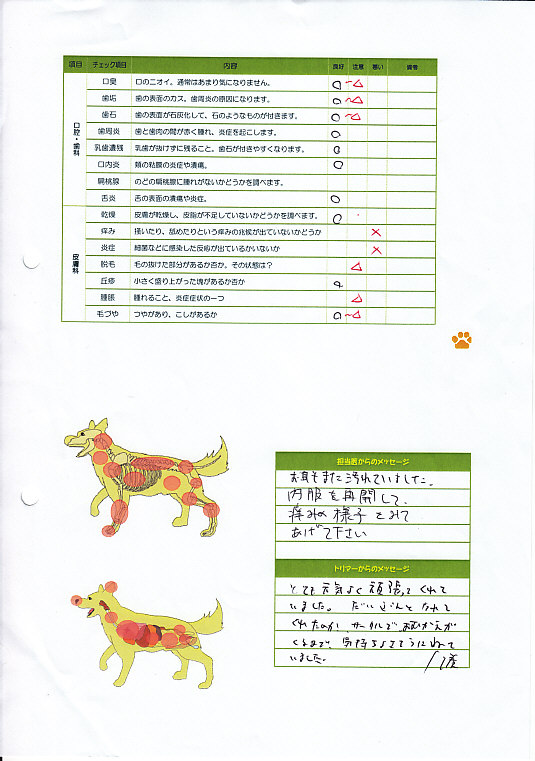 項目 チェック項目 内容 良好 注意 悪い 備考
口腔・歯科
口臭 口のニオイ。通常はあまり気になりません。 ○~△
歯垢 歯の表面のカス。歯周炎の原因になります。 ○~△
歯石 歯の表面が石灰化して、石のようなものが付きます。 ○~△
歯周炎 歯と歯肉の間が赤く腫れ、炎症を起こします。 ○
乳歯遺残 乳歯が抜けずに残ること。歯石が付きやすくなります。 ○
口内炎 頬の粘膜の炎症や潰瘍。 ○
扁桃腺 のどの扁桃腺に腫れがないかどうかを調べます。
舌炎 舌の表面の潰瘍や炎症。 ○
皮膚科
乾燥 皮膚が乾燥し、皮脂が不足していないかどうかを調べます。 ○
痒み 掻いたり、舐めたりという痒みの兆候が出ていないかどうか ×
炎症 細菌などに感染した反応が出ているかいないか ×
脱毛 毛の抜けた部分があるか否か。その状態は? △
丘疹 小さく盛り上がった塊があるか否か ○
腫脹 腫れること、炎症症状の一つ △
毛づや つやがあり、こしがあるか ○~△
担当医からのメッセージ
お耳もまた汚れていました。
内服を再開して、
痒みの様子をみて
あげて下さい
トリマーからのメッセージ
とても元気よく頑張ってくれて
いました。だいぶんと なれて
くれたのか、サークルで おむかえが
くるまで、気持ちよさそうにねて
いました。